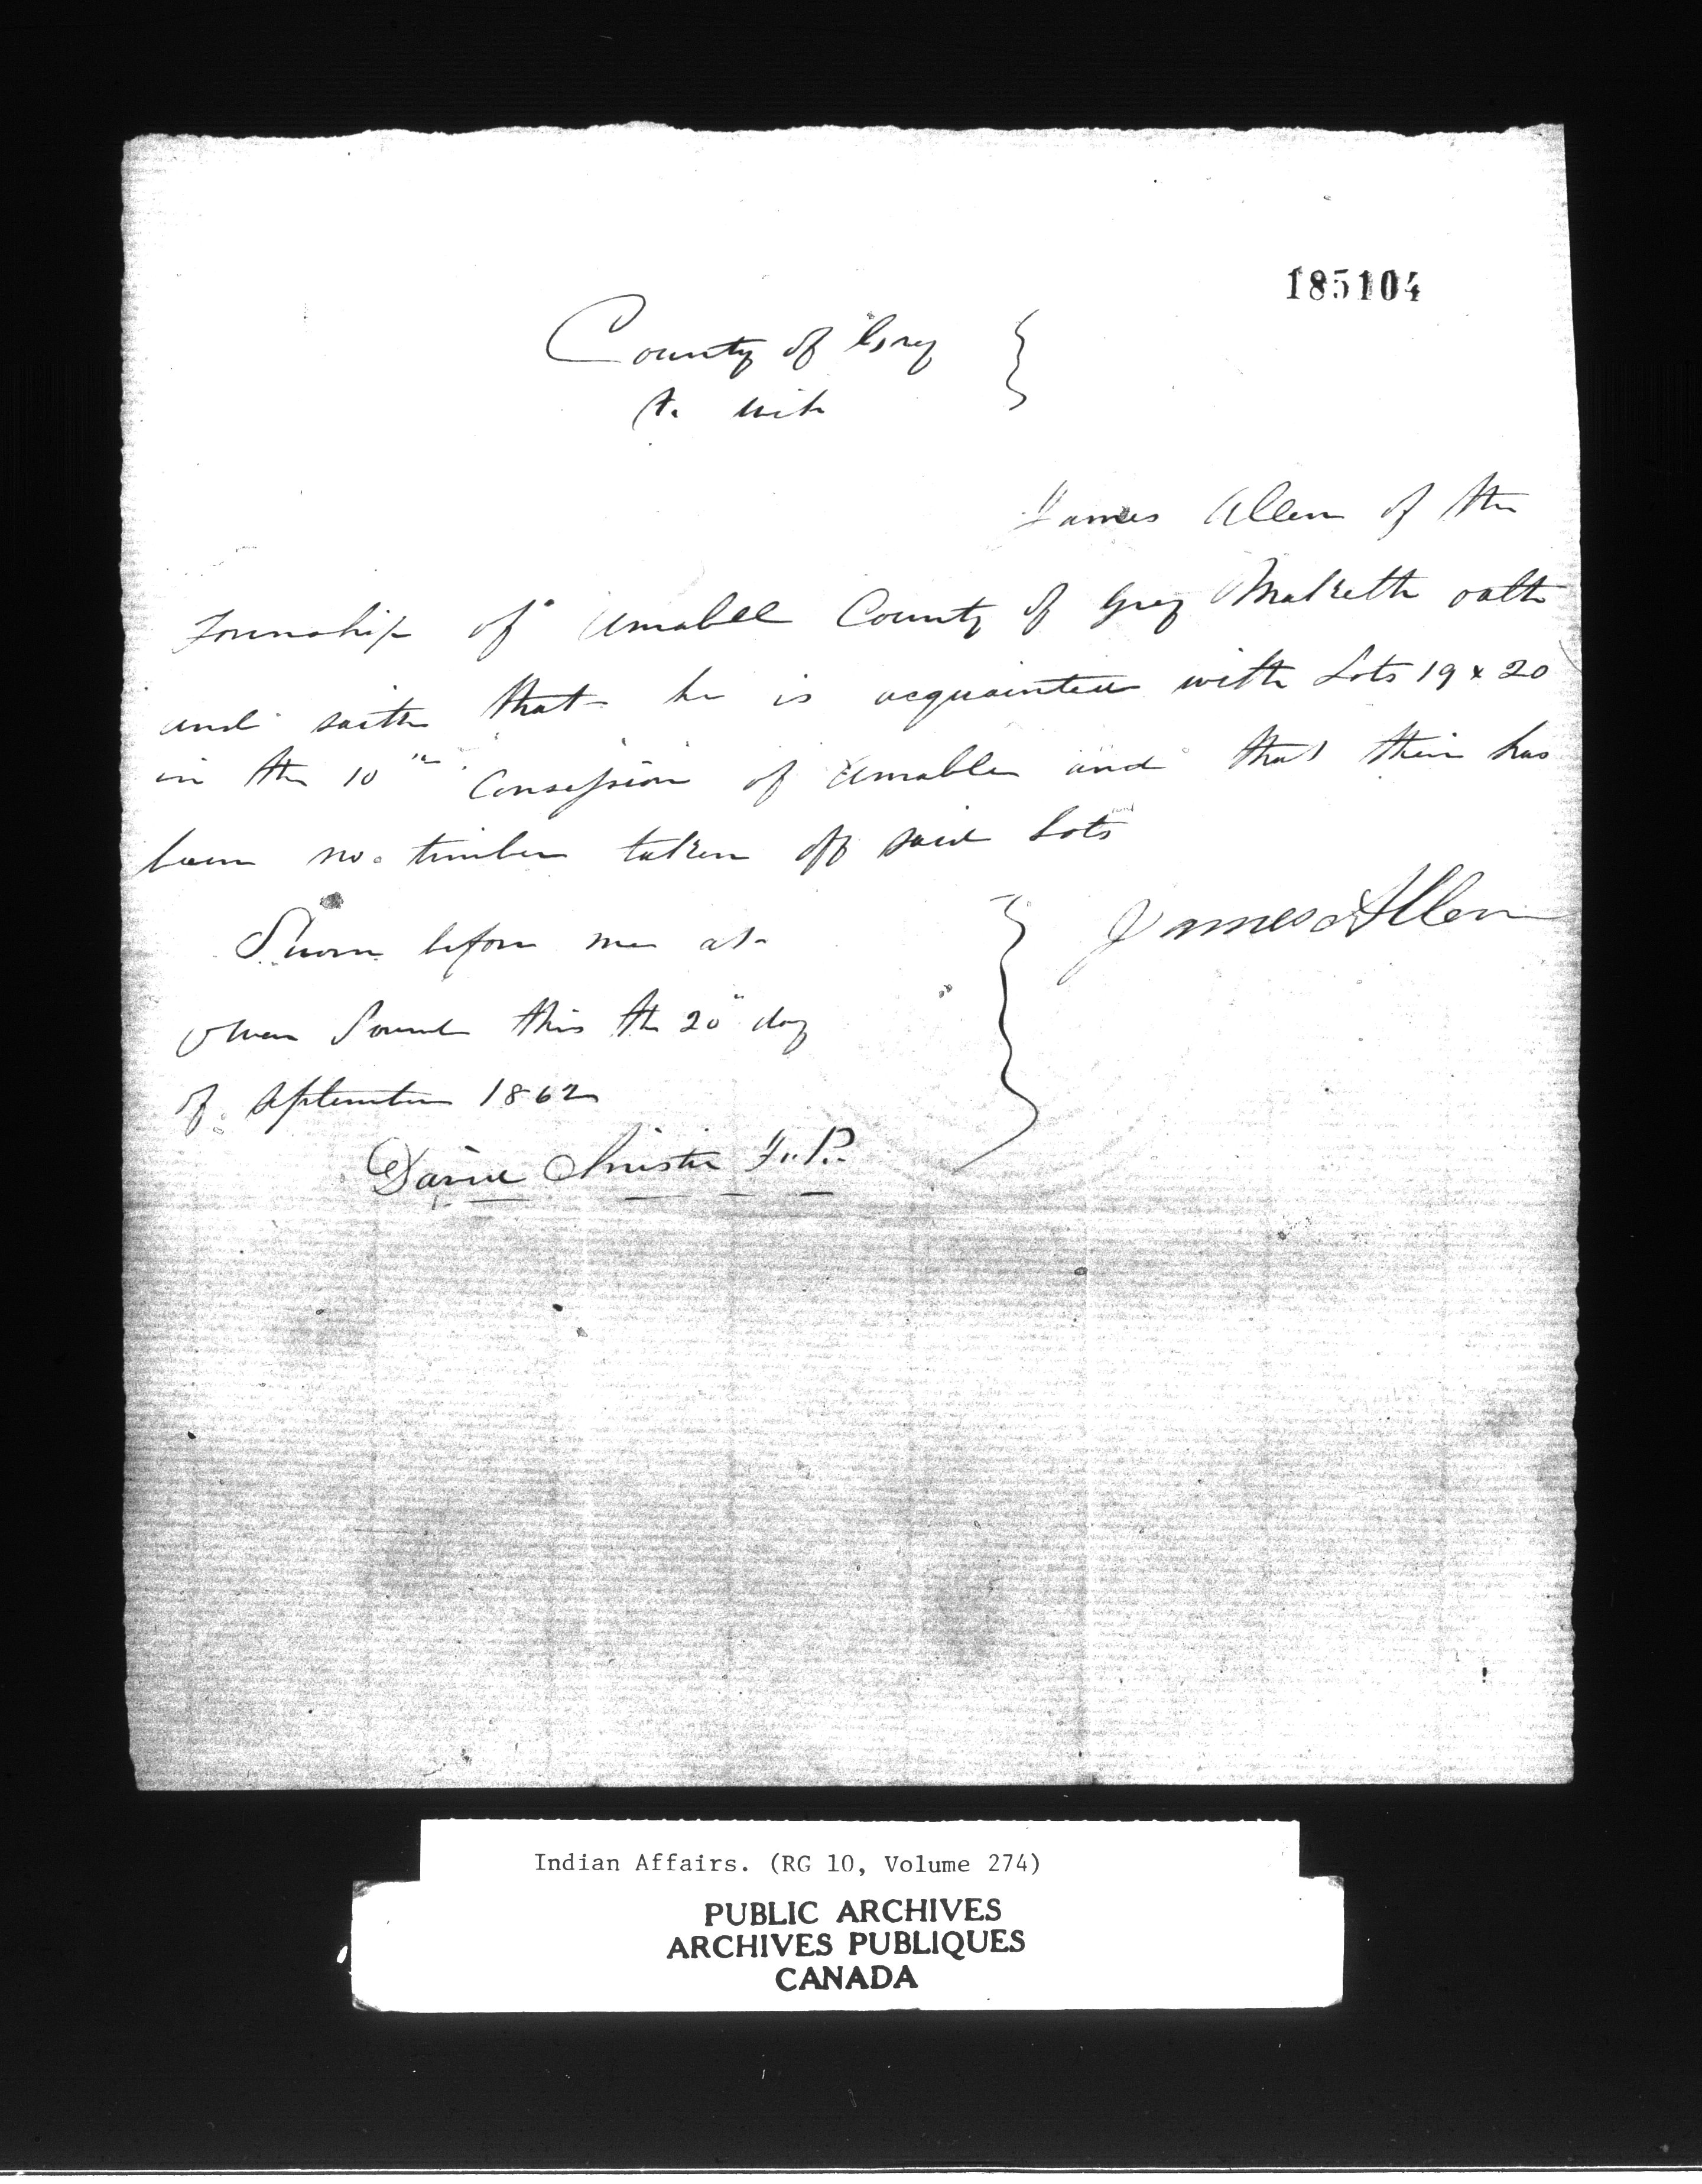 185104
County of Grey }
to wit
James Allen of the
Township of Amabel County of Grey Maketh oath
and saith that he is acquainted with Lots 19 & 20
in the 10th Consession of Amable and that their has
been no timber taken off said Lots
Sworn before me at } James Allen
Owen Sound this the 20" day
of September 1862
David Christie J.P.
Indian Affairs. (RG 10, Volume 274)
PUBLIC ARCHIVES
ARCHIVES PUBLIQUES
CANADA